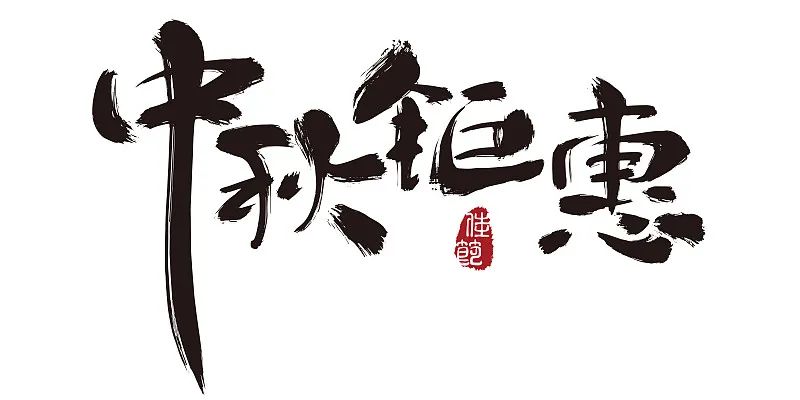 中秋钜惠
佳節